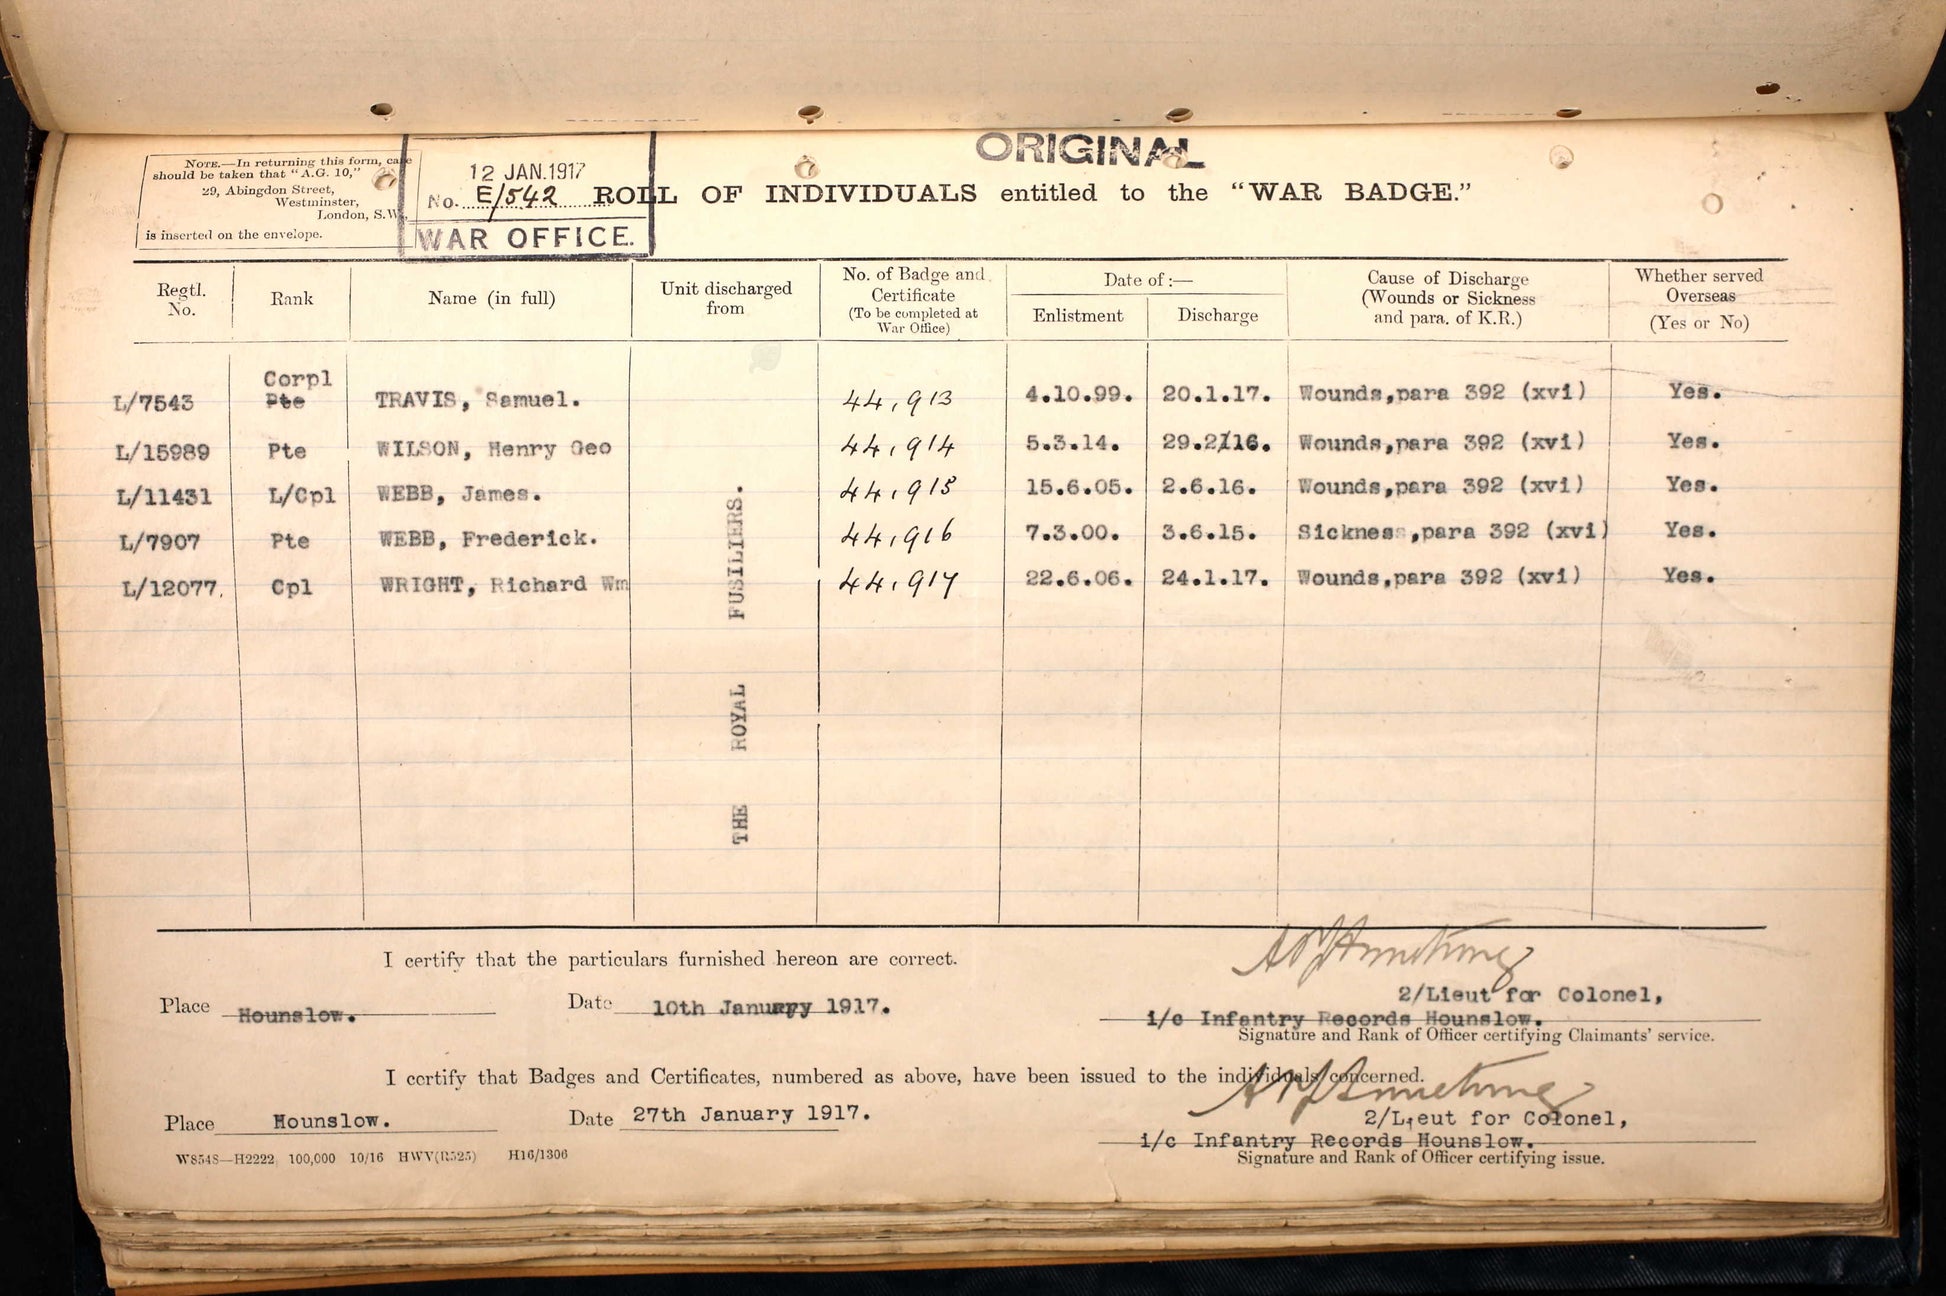 ORIGINAL
NOTE.—In returning this form, care
should be taken that "A.G. 10,"
29, Abingdon Street,
Westminster,
London, S.W.,
is inserted on the envelope.
12 JAN.1917
No. E/542
WAR OFFICE.
ROLL OF INDIVIDUALS entitled to the "WAR BADGE."
Regtl. No. Rank Name (in full) Unit discharged from No. of Badge and Certificate (To be completed at War Office) Date of :— Enlistment Discharge Cause of Discharge (Wounds or Sickness and para. of K.R.) Whether served Overseas (Yes or No)
Corpl
L/7543 Pte TRAVIS, Samuel. 44,913 4.10.99. 20.1.17. Wounds,para 392 (xvi) Yes.
L/15989 Pte WILSON, Henry Geo 44,914 5.3.14. 29.2.16. Wounds,para 392 (xvi) Yes.
L/11431 L/Cpl WEBB, James. 44,915 15.6.05. 2.6.16. Wounds,para 392 (xvi) Yes.
L/7907 Pte WEBB, Frederick. 44,916 7.3.00. 3.6.15. Sickness,para 392 (xvi) Yes.
L/12077. Cpl WRIGHT, Richard Wm 44,917 22.6.06. 24.1.17. Wounds,para 392 (xvi) Yes.
THE ROYAL FUSILIERS.
I certify that the particulars furnished hereon are correct.
Place Hounslow. Date 10th January 1917.
Armstrong
2/Lieut for Colonel,
i/c Infantry Records Hounslow.
Signature and Rank of Officer certifying Claimants' service.
I certify that Badges and Certificates, numbered as above, have been issued to the individuals concerned.
Armstrong
Place Hounslow. Date 27th January 1917.
2/Lieut for Colonel,
i/c Infantry Records Hounslow.
Signature and Rank of Officer certifying issue.
W8548—H2222 100,000 10/16 HWV(R525) H16/1306